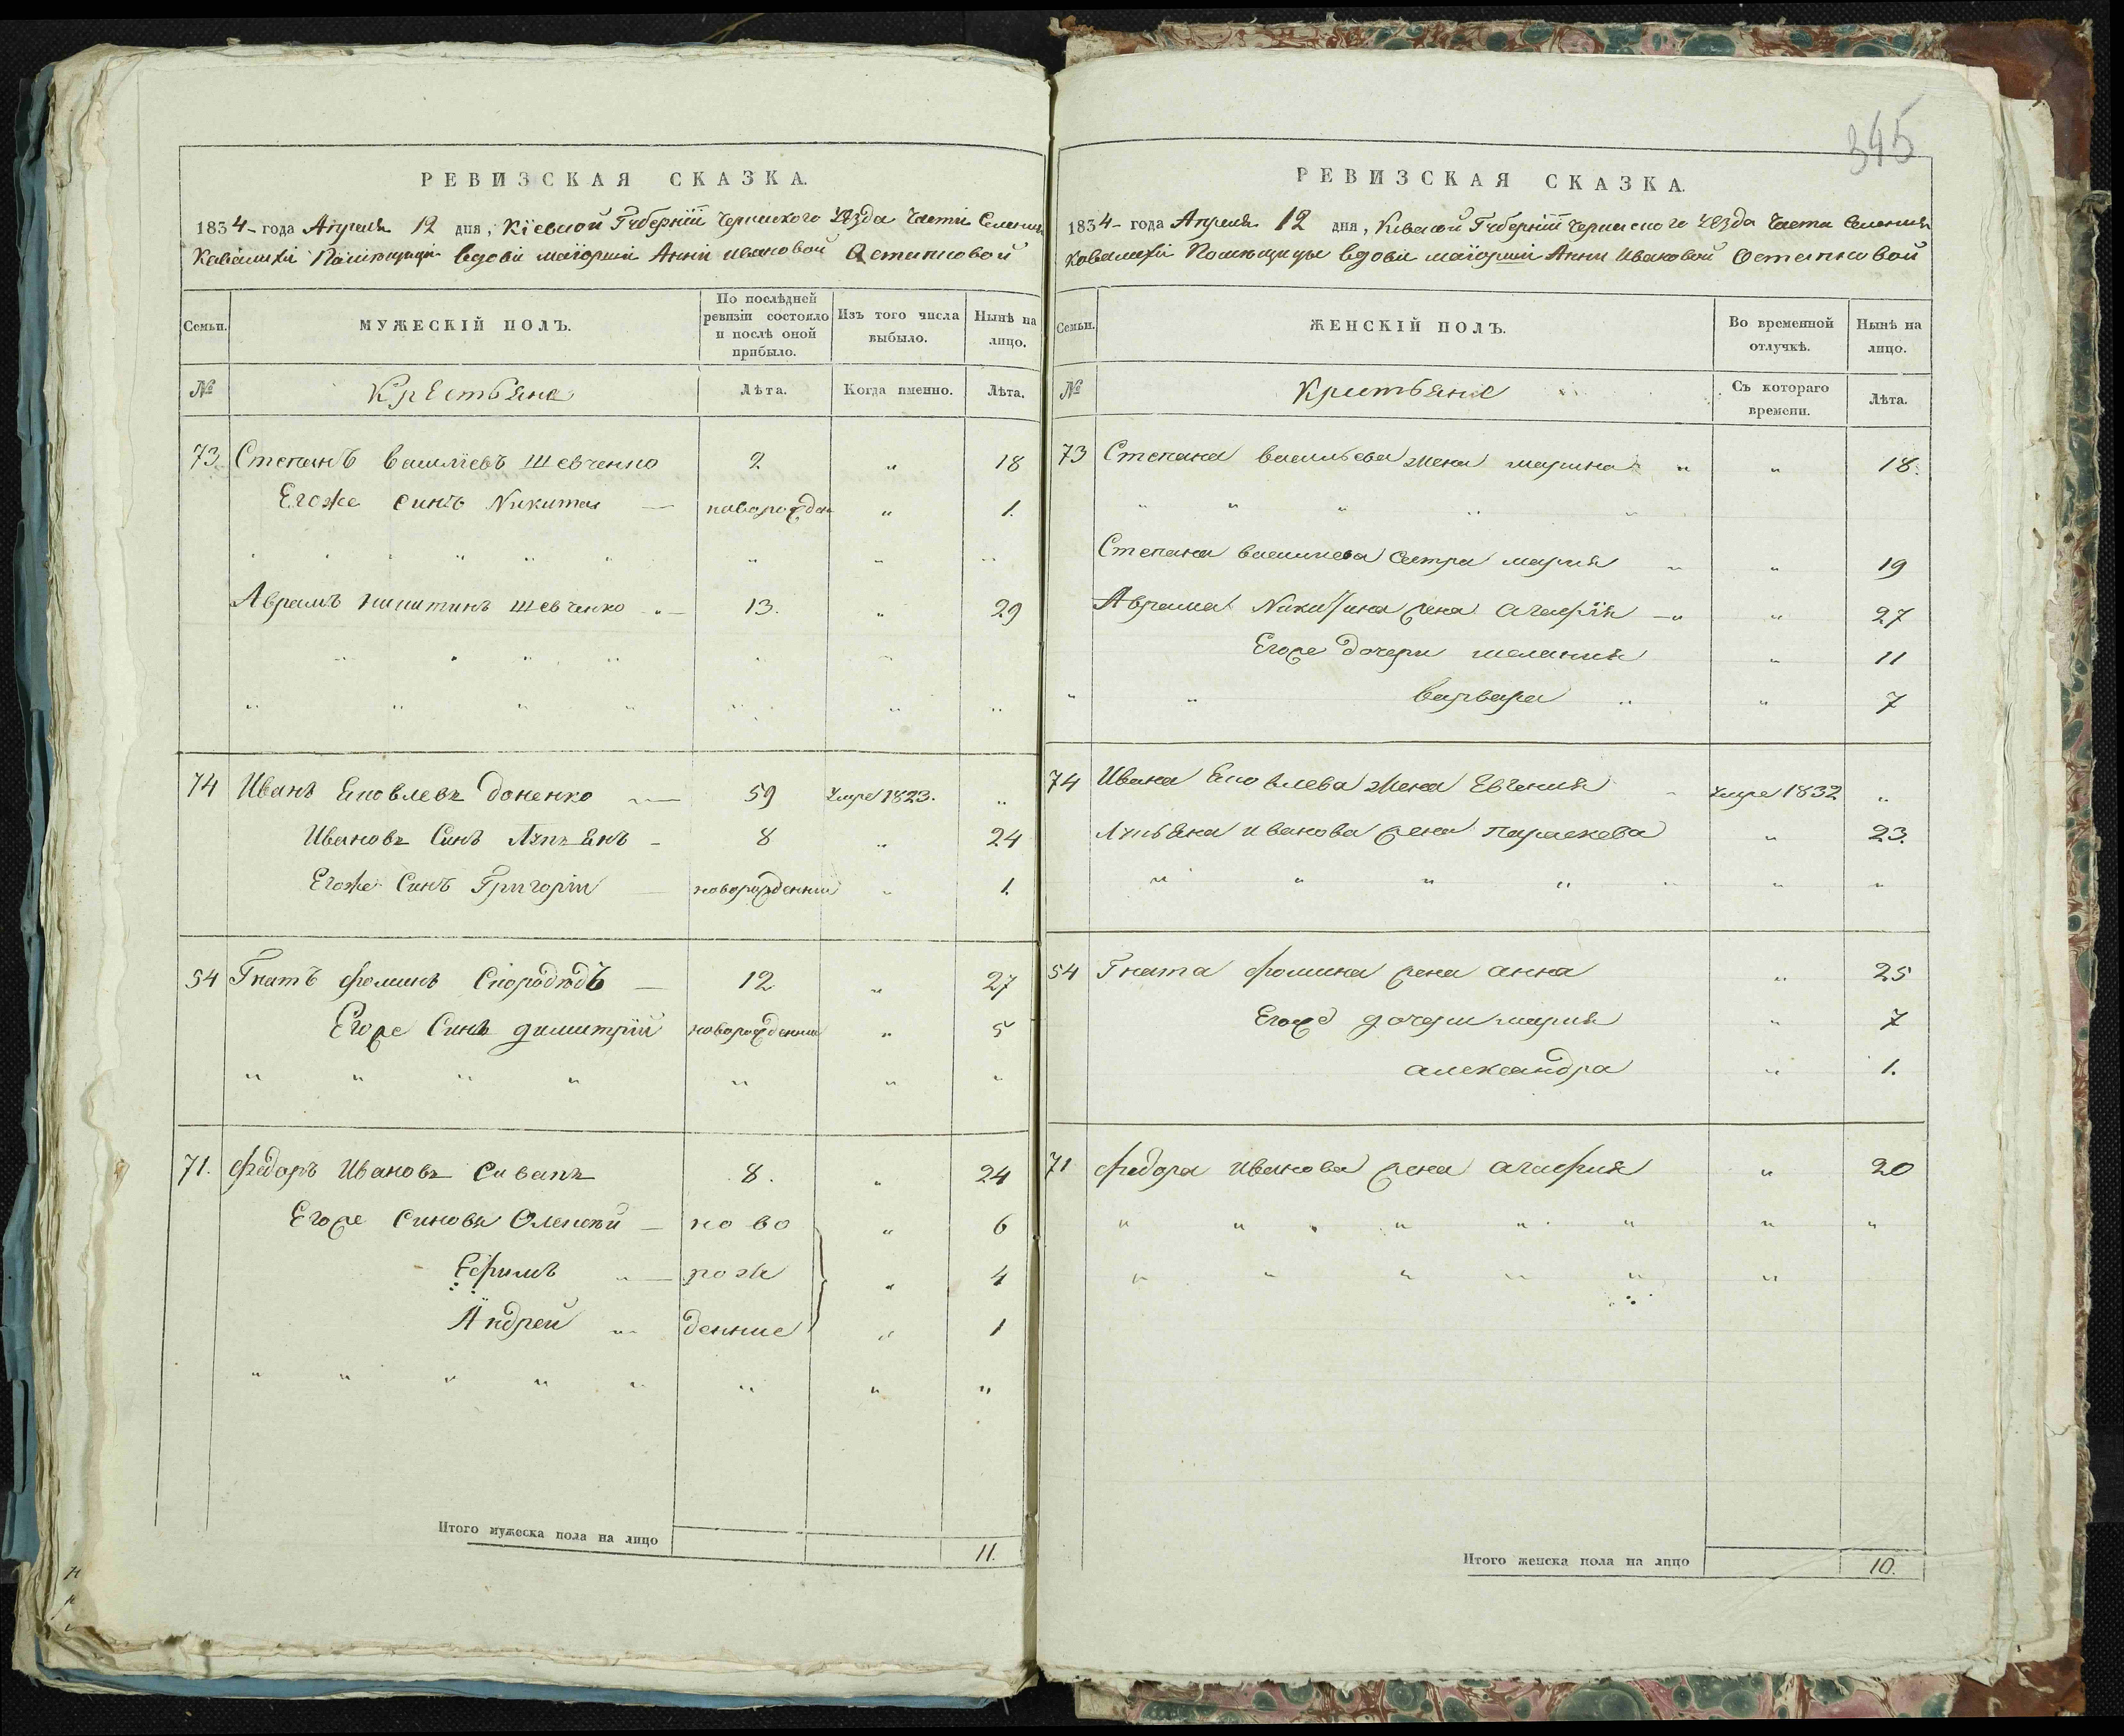 345
РЕВИЗСКАЯ СКАЗКА.
1834 года Апреля 12 дня, Кіевской Губерніи Черкаского уезда части Селения
Ковалихи Помещици вдови маіорши Анни ивановой Остапковой
Семьи.
МУЖЕСКІЙ ПОЛЪ.
По послѣдней ревизіи состояло и послѣ оной прибыло.
Изъ того числа выбыло.
Нынѣ на лицо.
№
Крестьяне
Лѣта.
Когда именно.
Лѣта.
73 Степанъ васильевъ шевченко 2 " 18
Егоже синъ Никита новорожден " 1.
Аврамъ никитинъ шевченко 13. " 29
74 Иванъ Яковлевъ доненко 59 умре 1823. "
Ивановъ Синъ Лукьянъ 8 " 24
Егоже Синъ Григорій новорожденний " 1.
54 Гнатъ фоминъ Скородѣдъ 12 " 27
Егоже Синъ димитрій новорожденни " 5
71. Федоръ Ивановъ Сивакъ 8. " 24
Егоже синовя Олексѣй ново " 6
Ефимъ рож " 4
Андрей денние " 1
Итого мужеска пола на лицо 11.
РЕВИЗСКАЯ СКАЗКА.
1834 года Апреля 12 дня, Кіевской Губерніи Черкаского уезда части Селения
Ковалихи Помещицы вдови маіорши Анни Ивановой Остапковой
Семьи.
ЖЕНСКІЙ ПОЛЪ.
Во временной отлучкѣ.
Нынѣ на лицо.
№
Кристьяне
Съ котораго времени.
Лѣта.
73 Степана васильева жена марина " " 18.
Степана василиева сестра мария " 19
Аврама Никитина жена агафія " 27
Егоже дочери мелания " 11
варвара " 7
74 Ивана Яковлева жена Евгения умре 1832 "
Лукьяна иванова жена параскева " 23.
54 Гната фомина жена анна " 25
Егоже дочери мария " 7
александра " 1.
71 федора иванова жена агафия " 20
Итого женска пола на лицо 10.